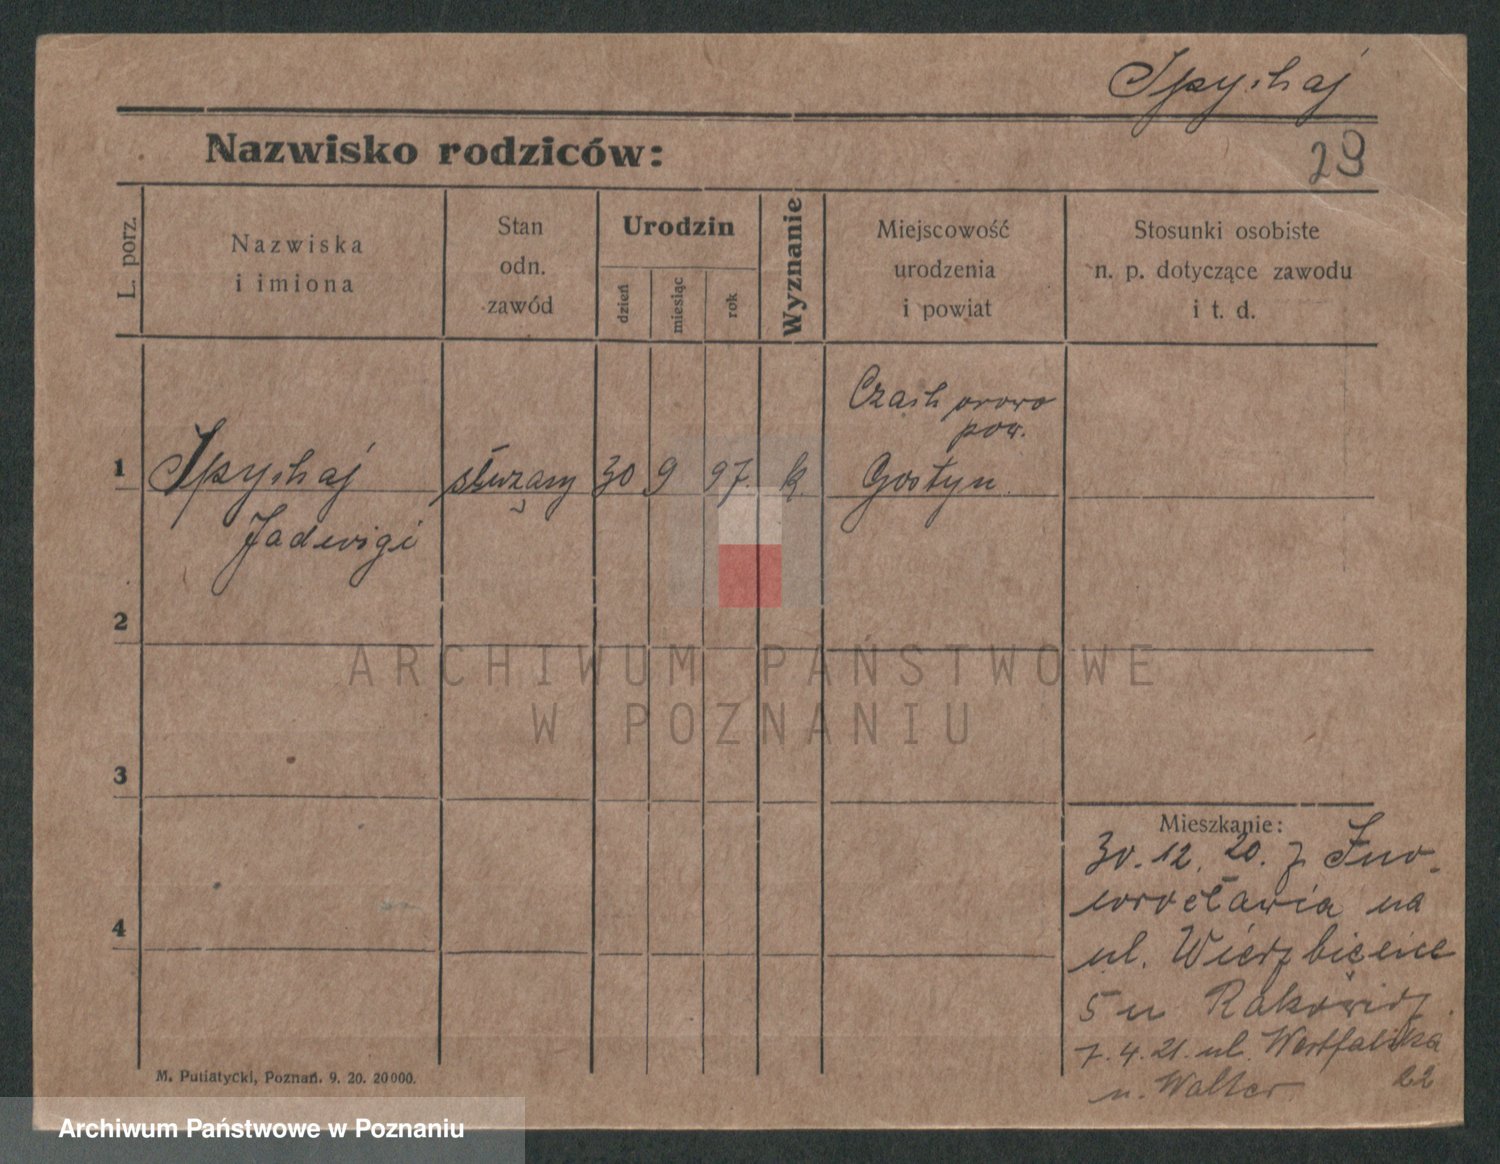 Spychaj
29
Nazwisko rodziców:
L. porz.
Nazwiska
i imiona
Stan
odn.
zawód
Urodzin
dzień
miesiąc
rok
Wyznanie
Miejscowość
urodzenia
i powiat
Stosunki osobiste
n. p. dotyczące zawodu
i t. d.
1
Spychaj
Jadwigi
służący
30
9
97.
k.
pow.
Gostyn
2
3
4
ARCHIWUM PAŃSTWOWE
W POZNANIU
Mieszkanie:
30.12.20. z Ino-
wrocławia na
ul. Wierzbięcice
5 u
7.4.21. ul. Westfalska
22
u. Walter
M. Putiatycki, Poznań. 9. 20. 20000.
Archiwum Państwowe w Poznaniu